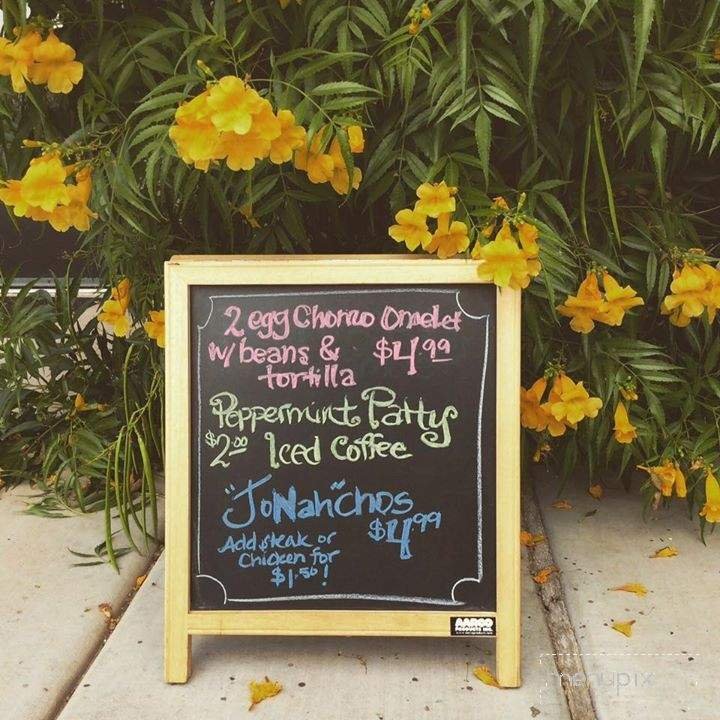 2 egg Chorizo Omelet
w/ beans & $4.99
tortilla
Peppermint Patty
$2.00 Iced Coffee
"JoNah"chos
$4.99
Add steak or
Chicken for
$1.50!
AARCO
PRODUCTS INC.
menupix